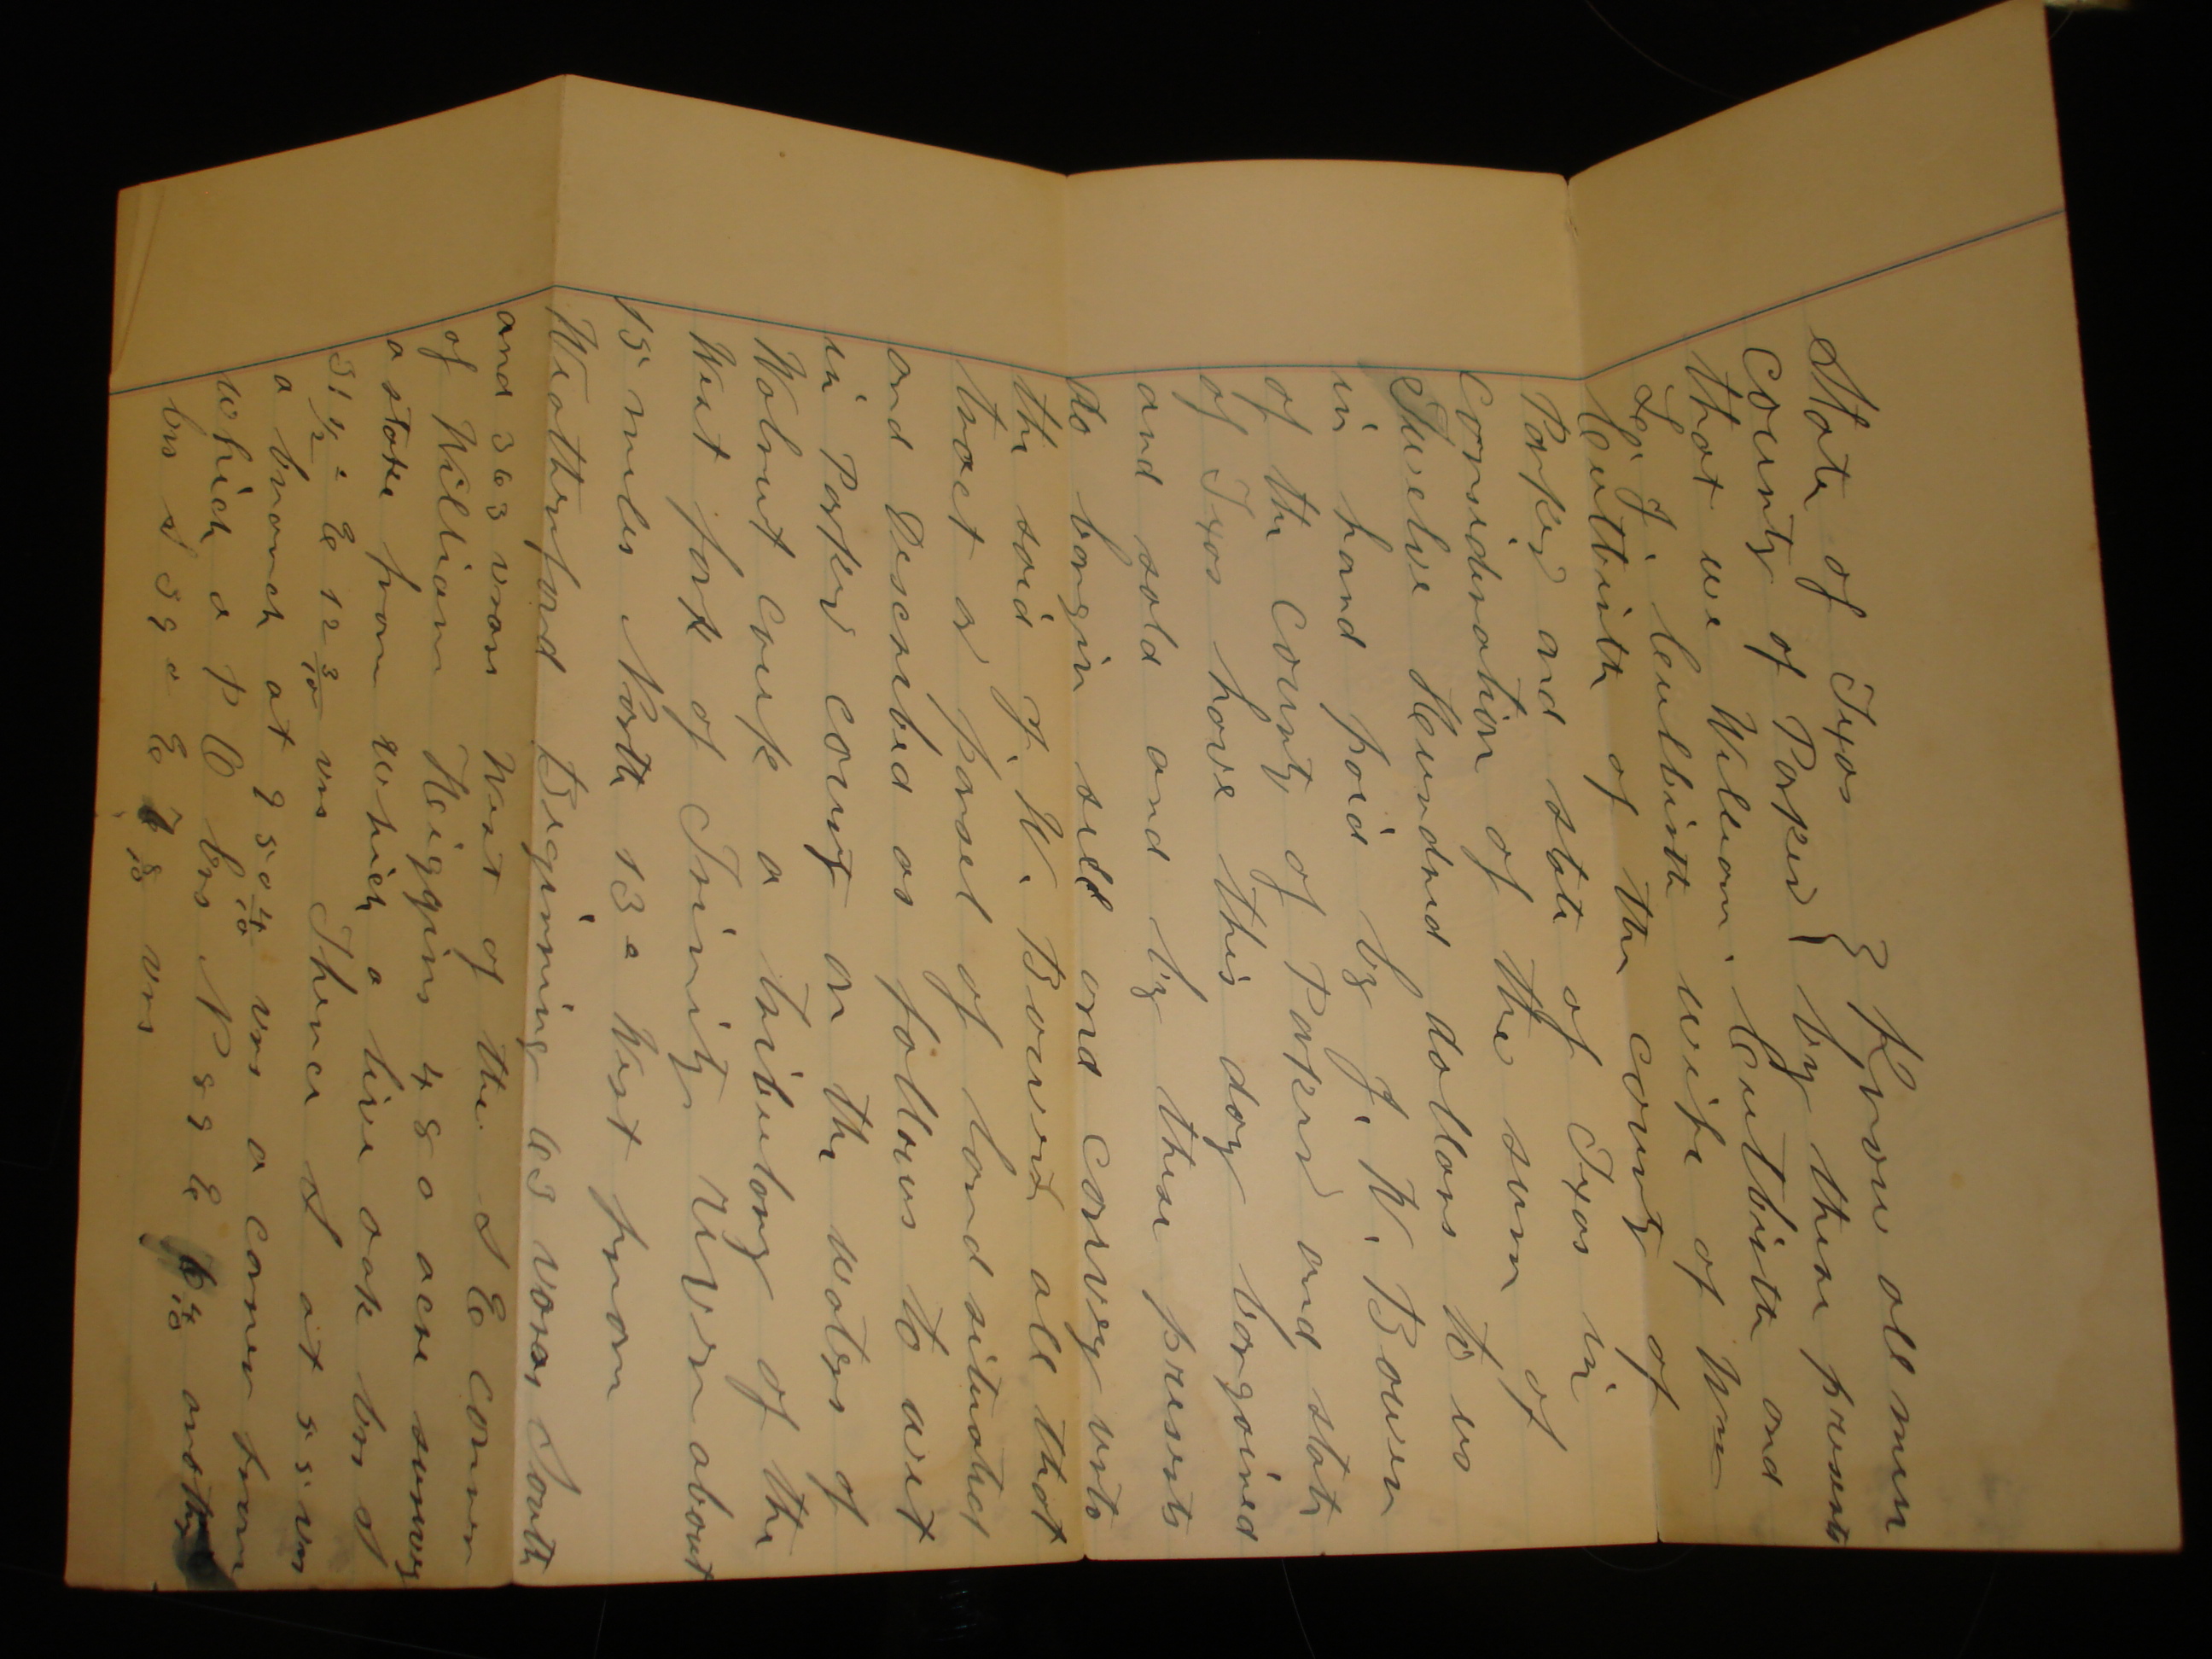 State of Texas } Know all men
County of Parker } by these presents
that we William Cutbirth and
L. J. Cutbirth wife of Wm
Cutbirth of the county of
Parker and state of Texas in
consideration of the sum of
Twelve Hundred dollars to us
in hand paid by J. W. Bowen
of the County of Parker and state
of Texas have this day bargained
and sold and by these presents
do bargin sell and convey unto
the said J. W. Bowen all that
tract or parsel of land situated
and Described as follows to wit
in Parker county on the waters of
Walnut Creek a tributary of the
West fork of Trinity River about
15 miles North 13° West from
Weatherford Beginning 63 varas South
and 363 varas West of the S E corner
of William Higgins 480 acre survey
a stake from which a live oak brs S
31½° E 12 3/10 vrs Thence S at 55 vrs
a branch at 950 4/10 vrs a corner from
which a P O brs N 59 E 6 4/10 another
brs S 39° E 7 5/10 vrs